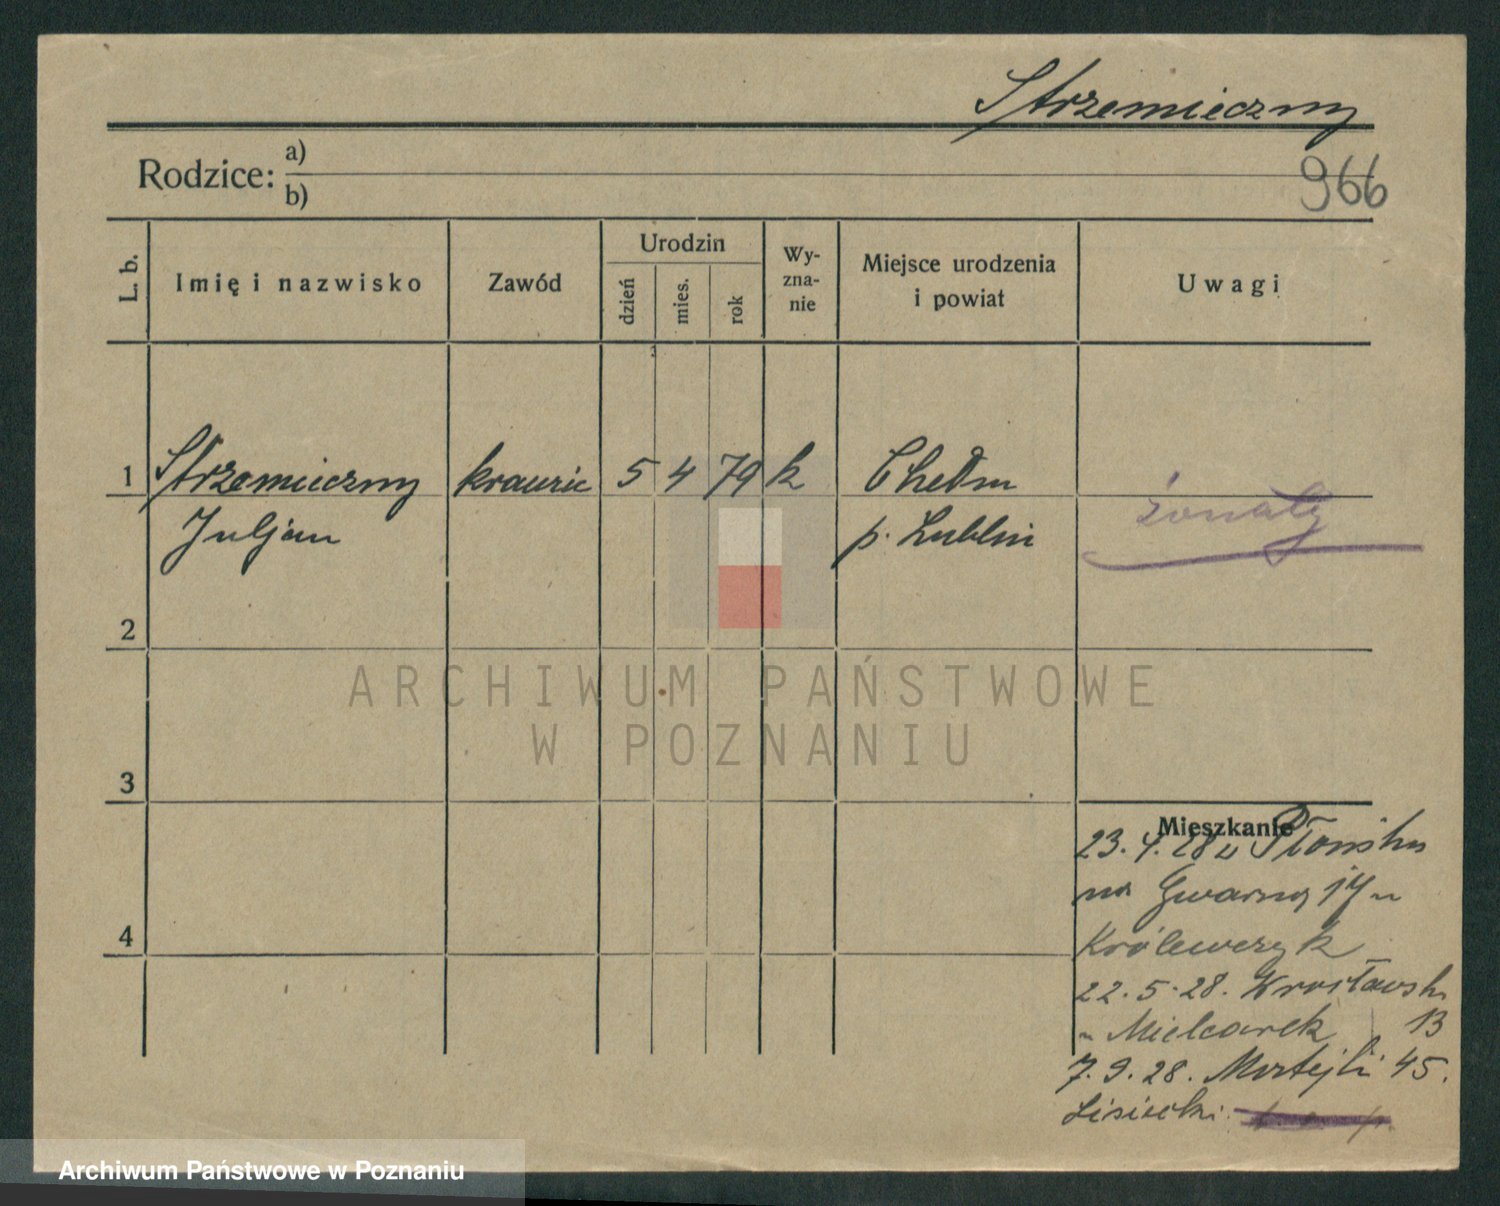 Strzemieczny
Rodzice: a)
b)
966
L. b.
Imię i nazwisko
Zawód
Urodzin
dzień
mies.
rok
Wy-
zna-
nie
Miejsce urodzenia
i powiat
Uwagi
1 Strzemieczny krawiec 5 4 79 k Chełm
Juljan p. Lublin
żonaty
2
3
4
Mieszkanie
23. 4. 28 u Płońska
na Gwarną 14 u
Królewczyk
22. 5. 28. Wrocławsk
u Mielcarek 13
7. 9. 28. 45.
Lisiecki.
ARCHIWUM PAŃSTWOWE
W POZNANIU
Archiwum Państwowe w Poznaniu